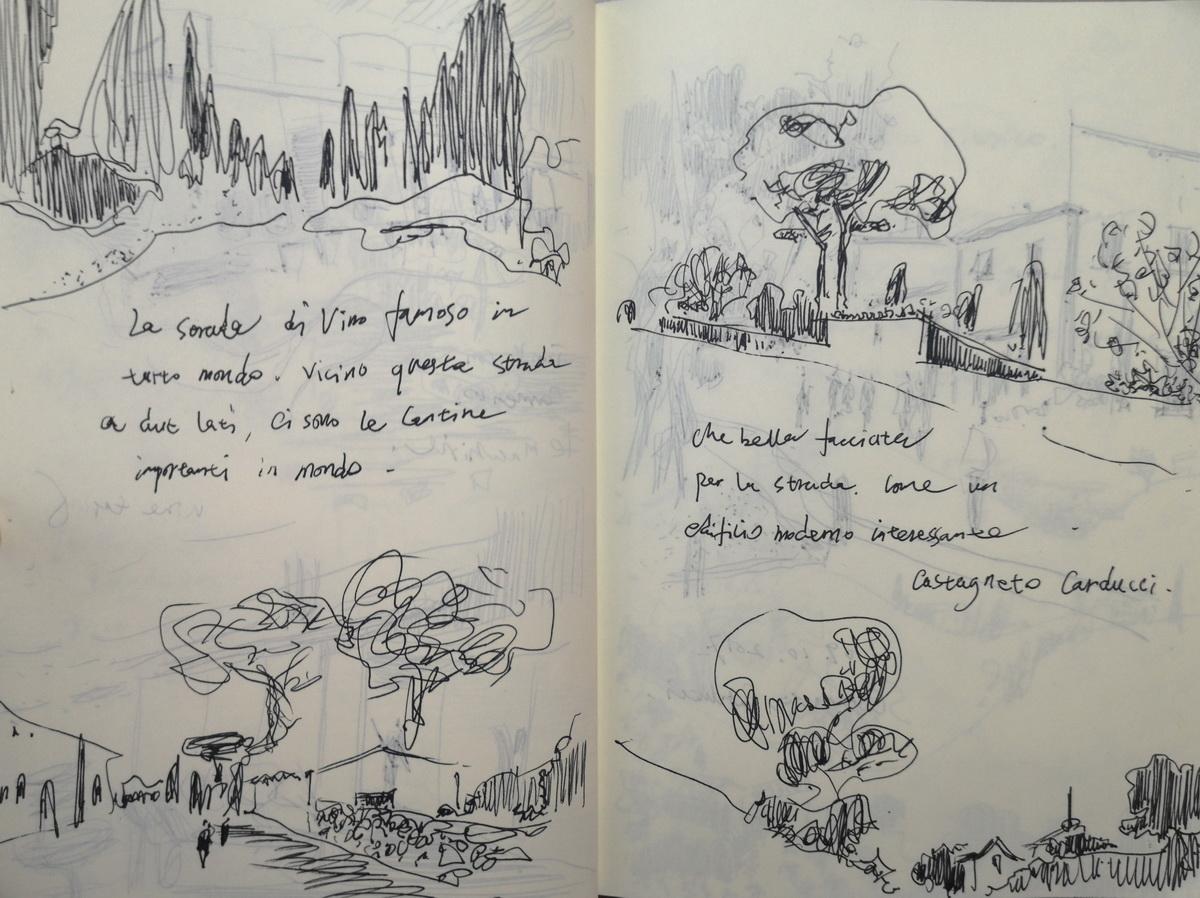 La strada di Vino famoso in
tutto mondo. Vicino questa strada
a due lati, ci sono le Cantine
importanti in mondo -
che bella facciata
per la strada. Come un
edificio moderno interessante
Castagneto Carducci.